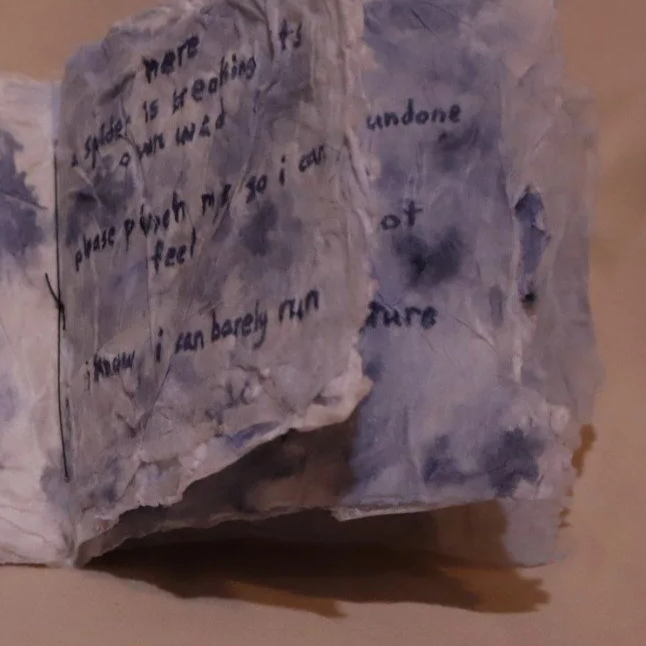 here
a spider is breaking its
own web
please punch me so i can
feel
i know i can barely run
undone
ot
ture